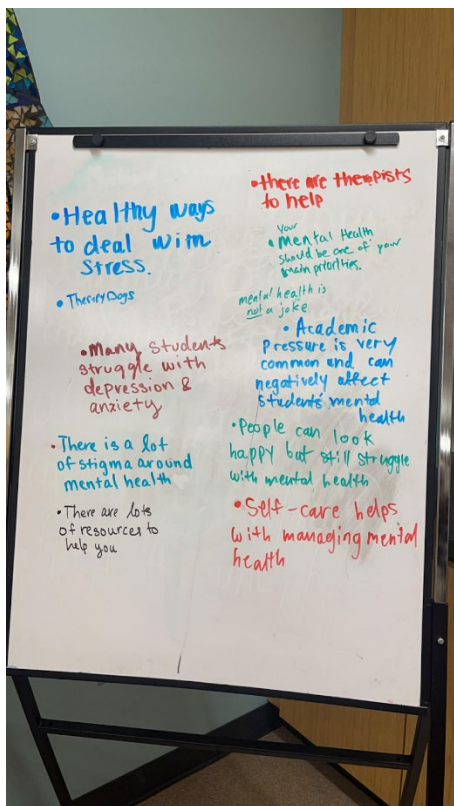 •Healthy ways
to deal with
stress.
• Therapy Dogs
•Many students
struggle with
depression &
anxiety
•There is a lot
of stigma around
mental health
•There are lots
of resources to
help you
•there are therapists
to help
your
•Mental Health
should be one of your
main priorities.
mental health is
not a joke
•Academic
Pressure is very
common and can
negatively affect
students' mental
health
•People can look
happy but still struggle
with mental health
•Self-care helps
with managing mental
health